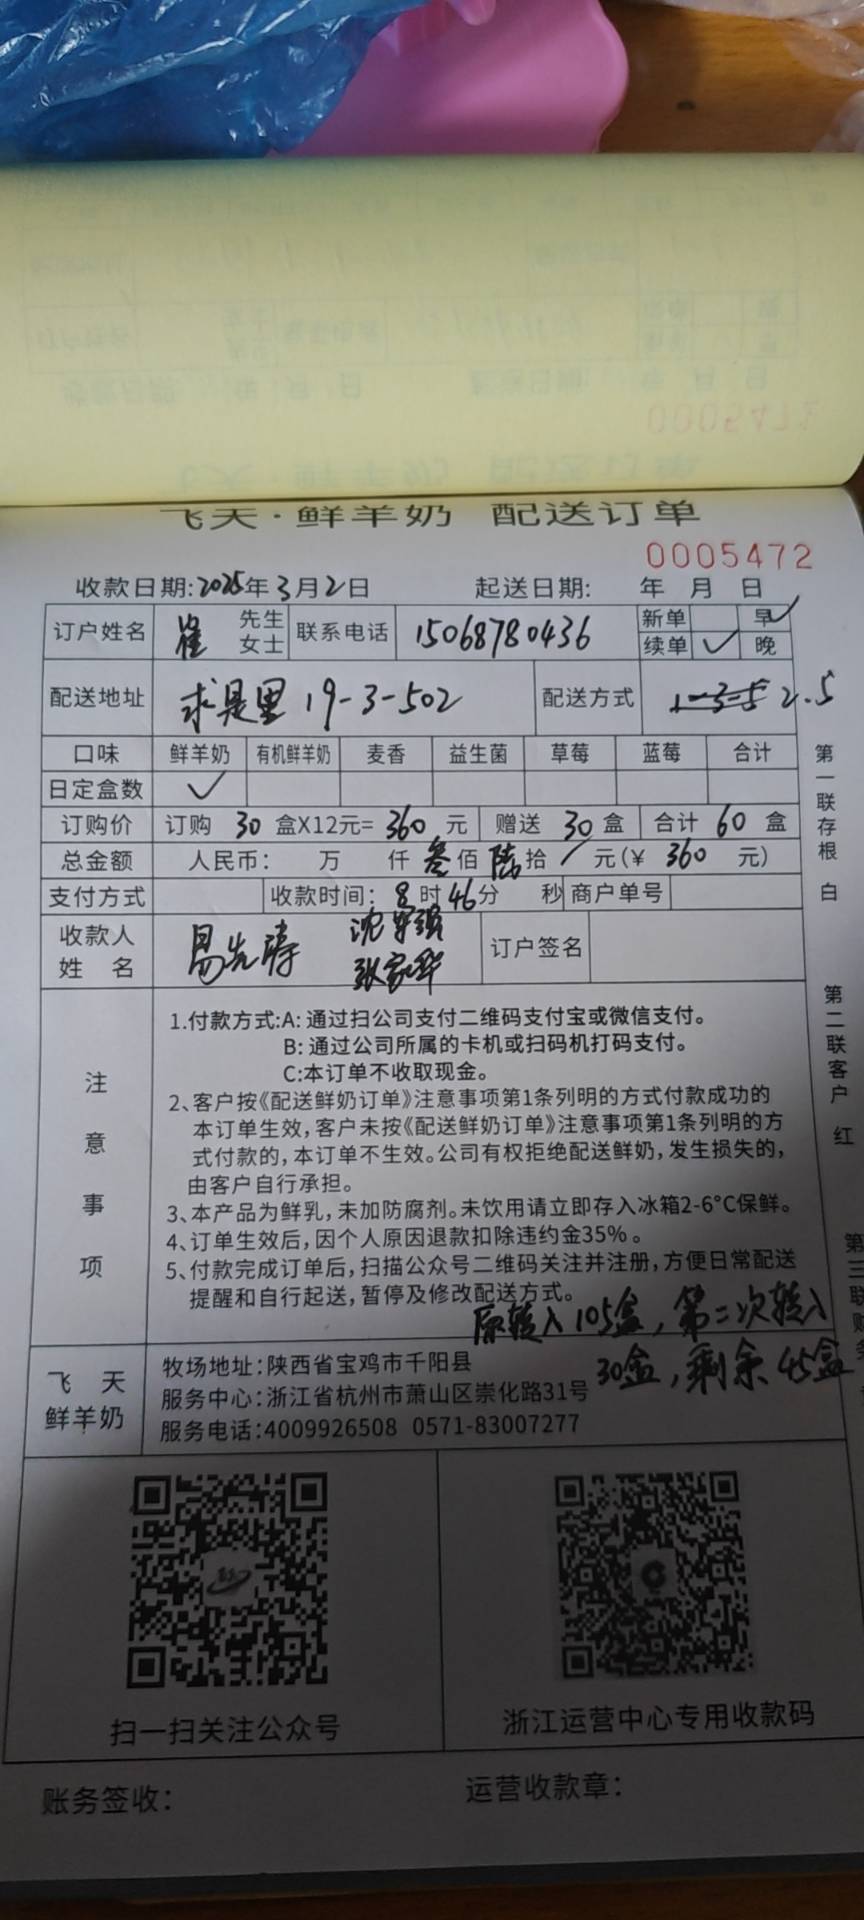 飞天·鲜羊奶 配送订单
0005472
收款日期:2025年3月2日 起送日期: 年 月 日
订户姓名 崔 先生 女士 联系电话 15068780436 新单 早✓
续单 ✓ 晚
配送地址 求是里19-3-502 配送方式 1-3-5 2.5
口味 鲜羊奶 有机鲜羊奶 麦香 益生菌 草莓 蓝莓 合计
日定盒数 ✓
订购价 订购 30 盒X12元= 360 元 赠送 30 盒 合计 60 盒
总金额 人民币: 万 仟 叁佰 陆拾 / 元(¥ 360 元)
支付方式 收款时间: 8时46分 秒 商户单号
收款人姓名 易先涛 张家华 订户签名
注意事项
1.付款方式:A: 通过扫公司支付二维码支付宝或微信支付。
B: 通过公司所属的卡机或扫码机打码支付。
C:本订单不收取现金。
2、客户按《配送鲜奶订单》注意事项第1条列明的方式付款成功的
本订单生效,客户未按《配送鲜奶订单》注意事项第1条列明的方
式付款的,本订单不生效。公司有权拒绝配送鲜奶,发生损失的,
由客户自行承担。
3、本产品为鲜乳,未加防腐剂。未饮用请立即存入冰箱2-6°C保鲜。
4、订单生效后,因个人原因退款扣除违约金35%。
5、付款完成订单后,扫描公众号二维码关注并注册,方便日常配送
提醒和自行起送,暂停及修改配送方式。
原转入105盒,第二次转入
30盒,剩余45盒
飞天鲜羊奶
牧场地址:陕西省宝鸡市千阳县
服务中心:浙江省杭州市萧山区崇化路31号
服务电话:4009926508 0571-83007277
扫一扫关注公众号
浙江运营中心专用收款码
账务签收:
运营收款章:
第一联存根 白
第二联客户 红
第三联财务